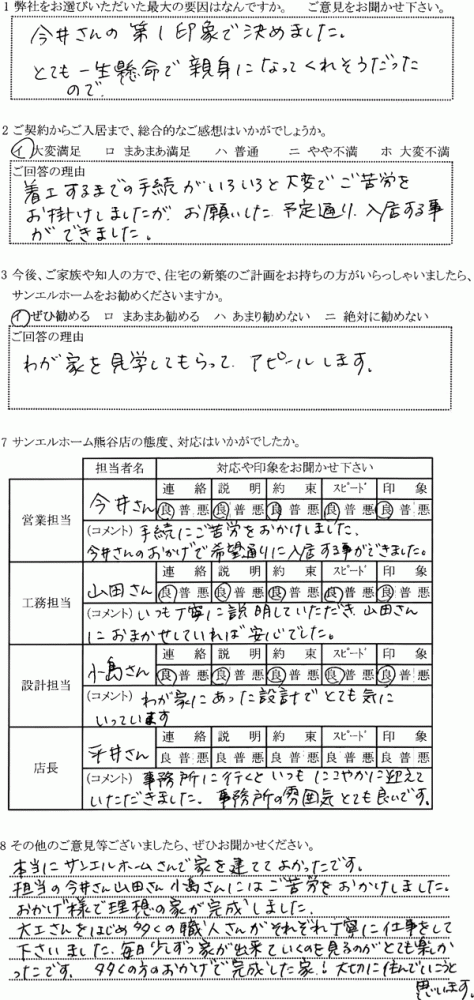 1 弊社をお選びいただいた最大の要因はなんですか。 ご意見をお聞かせ下さい。
今井さんの第1印象で決めました。
とても一生懸命で親身になってくれそうだった
ので。
2 ご契約からご入居まで、総合的なご感想はいかがでしょうか。
イ 大変満足 ロ まあまあ満足 ハ 普通 ニ やや不満 ホ 大変不満
ご回答の理由
着工するまでの手続がいろいろと大変でご苦労を
お掛けしましたが、お願いした予定通り入居する事
ができました。
3 今後、ご家族や知人の方で、住宅の新築のご計画をお持ちの方がいらっしゃいましたら、
サンエルホームをお勧めくださいますか。
イ ぜひ勧める ロ まあまあ勧める ハ あまり勧めない ニ 絶対に勧めない
ご回答の理由
わが家を見学してもらって、アピールします。
7 サンエルホーム熊谷店の態度、対応はいかがでしたか。
担当者名 対応や印象をお聞かせ下さい
営業担当 今井さん 連絡 説明 約束 スピード 印象
良 普 悪 良 普 悪 良 普 悪 良 普 悪 良 普 悪
(コメント) 手続にご苦労をおかけしました、
今井さんのおかげで希望通りに入居する事ができました。
工務担当 山田さん 連絡 説明 約束 スピード 印象
良 普 悪 良 普 悪 良 普 悪 良 普 悪 良 普 悪
(コメント) いつも丁寧に説明していただき、山田さん
におまかせしていれば安心でした。
設計担当 小島さん 連絡 説明 約束 スピード 印象
良 普 悪 良 普 悪 良 普 悪 良 普 悪 良 普 悪
(コメント) わが家にあった設計でとても気に
いっています
店長 平井さん 連絡 説明 約束 スピード 印象
良 普 悪 良 普 悪 良 普 悪 良 普 悪 良 普 悪
(コメント) 事務所に行くといつもにこやかに迎えて
いただきました。事務所の雰囲気とても良いです。
8 その他のご意見等ございましたら、ぜひお聞かせください。
本当にサンエルホームさんで家を建ててよかったです。
担当の今井さん山田さん小島さんにはご苦労をおかけしました。
おかげ様で理想の家が完成しました。
大工さんをはじめ多くの職人さんがそれぞれ丁寧に仕事をして
下さいました、毎日少しずつ家が出来ていくのを見るのがとても楽しか
ったです。 多くの方のおかげで完成した家!大切に住んでいこうと
思います。